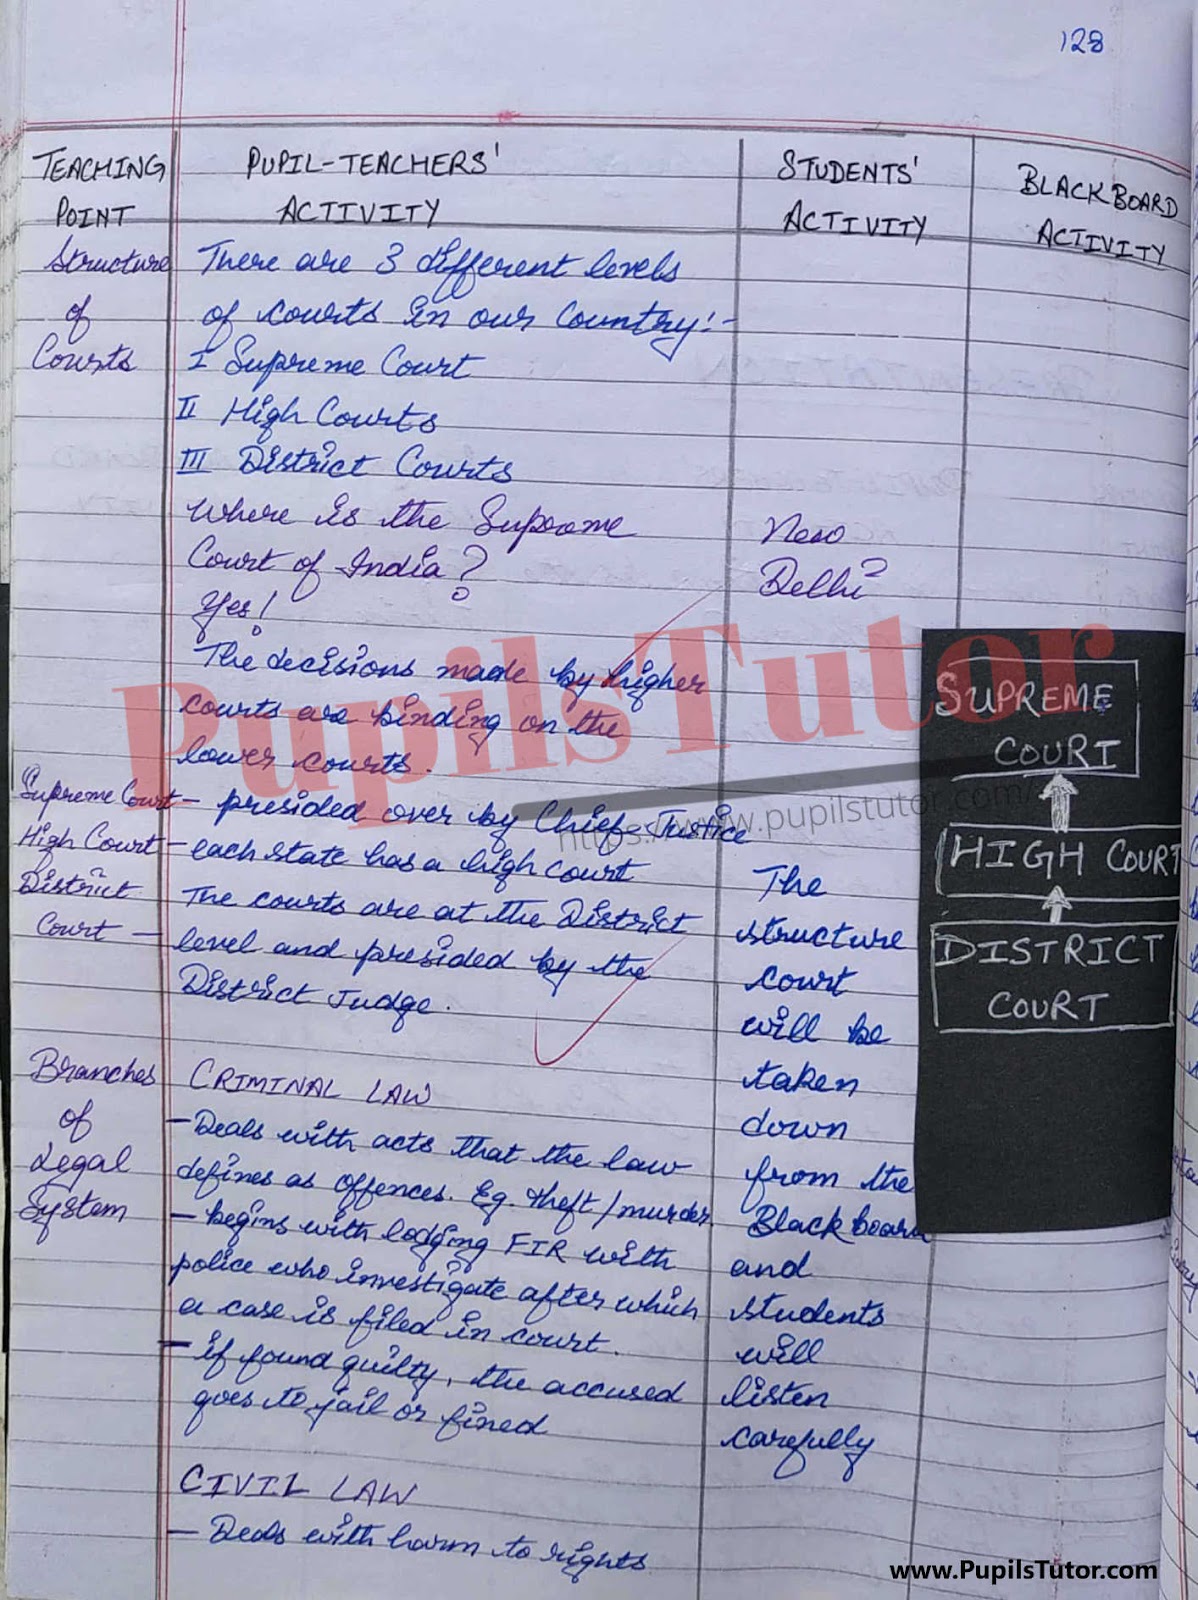 128
TEACHING POINT
PUPIL-TEACHERS' ACTIVITY
STUDENTS' ACTIVITY
BLACKBOARD ACTIVITY
Structure
of
Courts
There are 3 different levels
of courts in our Country:-
I Supreme Court
II High Courts
III District Courts
Where is the Supreme
Court of India?
New
Delhi
Yes!
The decisions made by higher
courts are binding on the
lower courts.
Supreme Court – presided over by Chief-Justice
High Court – each state has a high court
District
Court –
The courts are at the District
level and presided by the
District Judge.
The
structure
court
will be
taken
down
from the
Blackboard
and
students
will
listen
carefully
SUPREME
COURT
HIGH COURT
DISTRICT
COURT
Branches
of
Legal
System
CRIMINAL LAW
– Deals with acts that the law
defines as offences. Eg. theft/murder.
– begins with lodging FIR with
police who investigate after which
a case is filed in court.
– if found guilty, the accused
goes to jail or fined
CIVIL LAW
– Deals with harm to rights
PupilsTutor
https://www.pupilstutor.com/
www.PupilsTutor.com